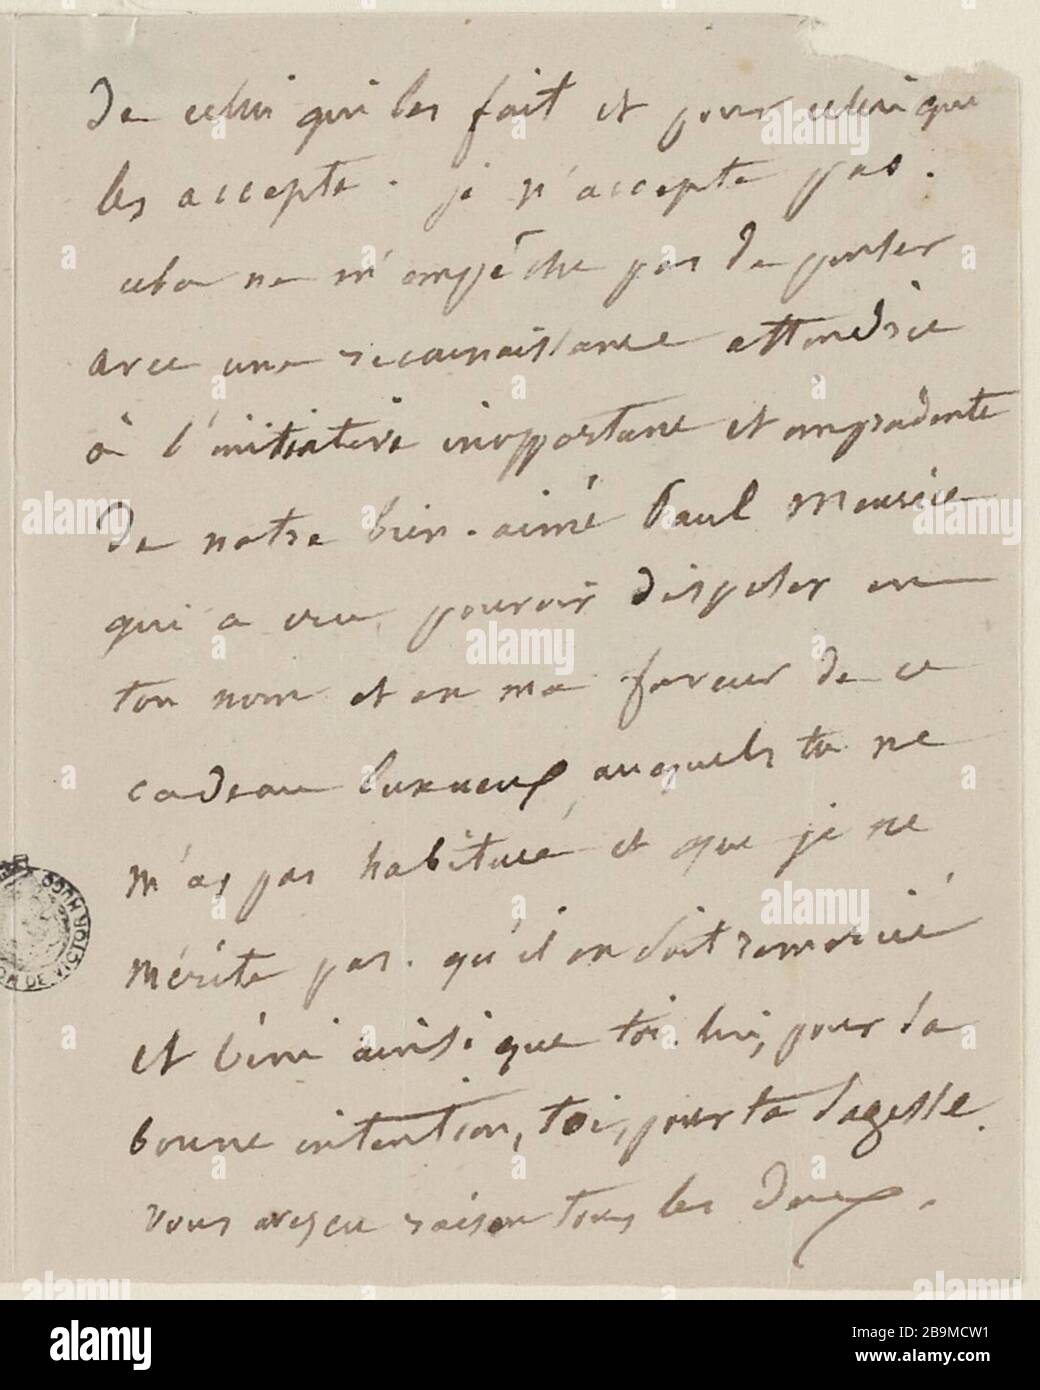 de celui qui les fait et pour celui qui
les accepte. je n'accepte pas.
cela ne m'empêche pas de penser
avec une reconnaissance attendrie
à l'initiative inopportune et imprudente
de notre bien-aimé Paul Meurice
qui a cru pouvoir disposer en
ton nom et en ma faveur de ce
cadeau luxueux auquels tu ne
m'as pas habituée et que je ne
mérite pas. qu'il en soit remercié
et béni ainsi que toi. lui, pour sa
bonne intention, toi, pour ta sagesse.
vous avez eu raison tous les deux.
MAISON DE VICTOR HUGO
alamy
Image ID: 2B9MCW1
www.alamy.com